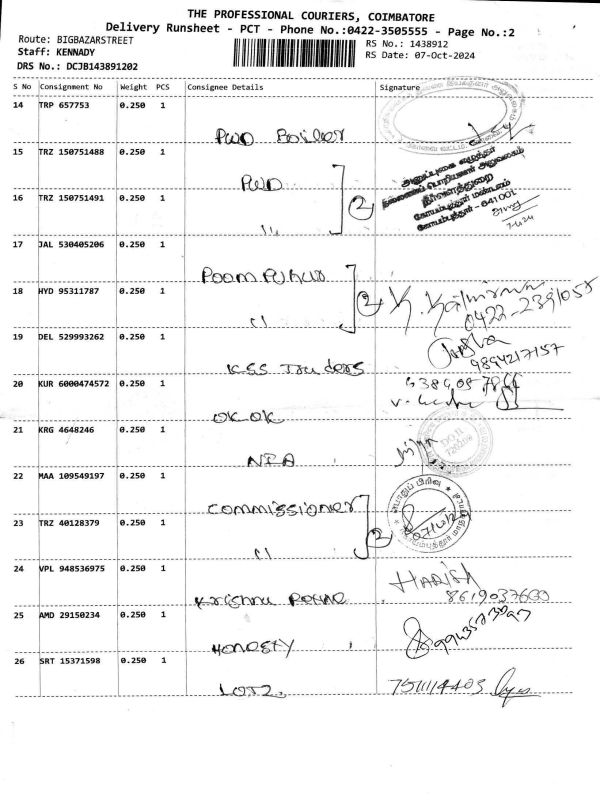 THE PROFESSIONAL COURIERS, COIMBATORE
Delivery Runsheet - PCT - Phone No.:0422-3505555 - Page No.:2
Route: BIGBAZARSTREET
RS No.: 1438912
Staff: KENNADY
RS Date: 07-Oct-2024
DRS No.: DCJB143891202
S No Consignment No Weight PCS Consignee Details Signature
14 TRP 657753 0.250 1
PWD Boiler
15 TRZ 150751488 0.250 1
PWD
அனுப்புகை எழுத்தர்
தலைமைப் பொறியாளர் அலுவலகம்
16 TRZ 150751491 0.250 1
நீர்வளத்துறை
கோயம்புத்தூர் மண்டலம்
" 2
கோயம்புத்தூர் - 641001.
17 JAL 530405206 0.250 1
POOM PUHAR
18 HYD 95311787 0.250 1
" 2
0422-2391055
19 DEL 529993262 0.250 1
KSS Traders
9894217157
20 KUR 6000474572 0.250 1
OK OK
21 KRG 4648246 0.250 1
NIA
22 MAA 109549197 0.250 1
commissioner
23 TRZ 40128379 0.250 1
" 2
24 VPL 948536975 0.250 1
Krishna
HARISH
8619037600
25 AMD 29150234 0.250 1
HONESTY
26 SRT 15371598 0.250 1
LOTZ.
7511114403